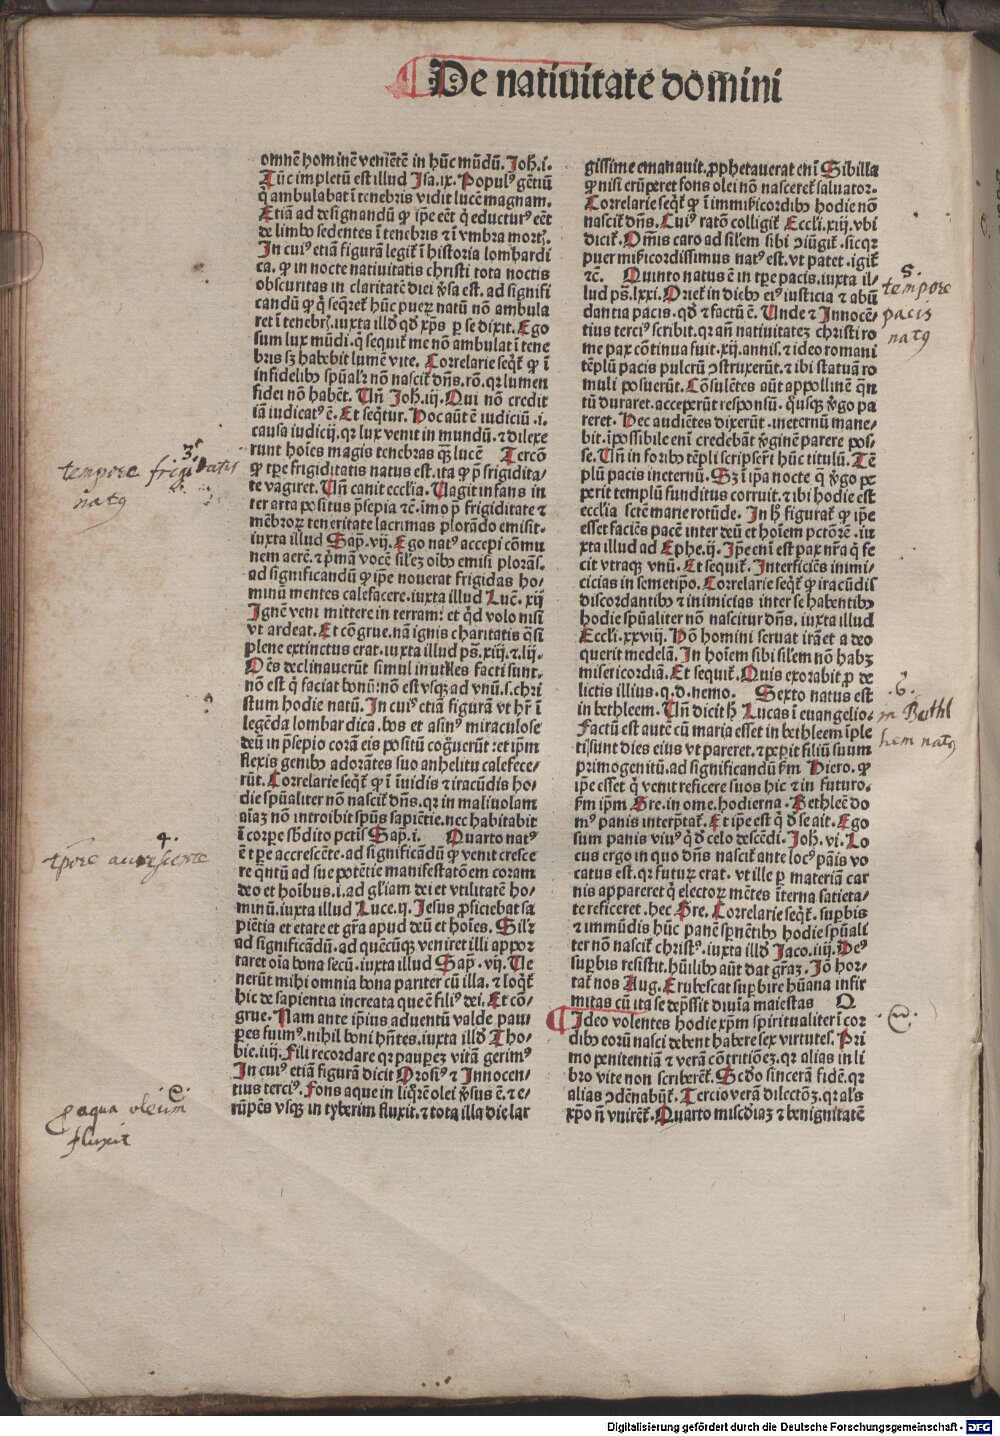 De natiuitate domini
omnē hominē veniētē in hūc mūdū. Joh. i.
Tūc impletū est illud Isa. ix. Popul⁹ gētiū
q̄ ambulabat ī tenebris vidit lucē magnam.
Etiā ad designandū ꝙ ip̄e eēt q̄ eductur⁹ eēt
de limbo sedentes ī tenebris ⁊ ī vmbra mortꝭ.
In cui⁹ etiā figurā legit̄ ī historia lombardi
ca. ꝙ in nocte natiuitatis christi tota noctis
obscuritas in claritatē diei v̄sa est. ad signifi
candū ꝙ q̄ seq̄ret̄ hūc pueꝝ natū nō ambula
ret ī tenebrꝭ. iuxta illd̓ qd̓ xp̄s ꝑ se dixit. Ego
sum lux mūdi. q̄ sequit̄ me nō ambulat ī tene
bris sꝫ habebit lumē vite. Correlarie seqt̄ ꝙ ī
infidelibꝰ spūal'r nō nascit̄ dn̄s. rō. qꝛ lumen
fidei nō habēt. Vn̄ Joh. iij. Qui nō credit
iā iudicat⁹ ē. Et seq̄tur. Hoc aūt ē iudiciū .i.
causa iudicij. qꝛ lux venit in mundū. ⁊ dilexe
runt hoīes magis tenebras qꝫ lucē Tercō
ꝙ tꝑe frigiditatis natus est. ita ꝙ p̄ frigidita⸗
te vagiret. Vn̄ canit eccl'ia. Vagit infans in
ter arta positus p̄sepia ⁊c̄. imo p̄ frigiditate ⁊
mēbroꝝ teneritate lacrimas plorādo emisit.
iuxta illud Sap̄. vij. Ego nat⁹ accepi cōmu
nem aerē. ⁊ p̄mā vocē sil'eꝫ oībꝰ emisi plorās.
ad significandū ꝙ ip̄e nouerat frigidas ho⸗
minū mentes calefacere. iuxta illud Luc̄. xij
Ignē veni mittere in terram: et qd̓ volo nisi
vt ardeat. Et cōgrue. nā ignis charitatis q̄si
plene extinctus erat. iuxta illud ps̄. xiij. ⁊ lij.
Oēs declinauerūt simul inutiles facti sunt.
nō est q̄ faciat bonū: nō est vsqꝫ ad vnū. s. chri
stum hodie natū. In cui⁹ etiā figurā vt hr̄ ī
legēda lombardica. bos et asin⁹ miraculose
deū in p̄sepio corā eis positū cog̓uerūt: et ip̄m
flexis genibꝰ adorātes suo anhelitu calefece⸗
rūt. Correlarie seqt̄ ꝙ ī īuidis ⁊ iracūdis ho⸗
die spūaliter nō nascit̄ dn̄s. qꝛ in maliuolam
aīaꝫ nō introibit spūs sapiētie. nec habitabit
ī corꝑe sb̓dito pctīs Sap̄. i. Quarto nat⁹
ē tꝑe accrescēte. ad significādū ꝙ venit cresce
re q̄ntū ad sue potētie manifestatōem coram
deo et hoībus. i. ad gl'iam dei et vtilitatē ho⸗
minū. iuxta illud Luce. ij. Jesus ꝓficiebat sa
piētia et etate et gr̄a apud deū et hoīes. Sil'r
ad significādū. ad quēcūqꝫ veniret illi appor
taret oīa bona secū. iuxta illud Sap̄. vij. Ve
nerūt mihi omnia bona pariter cū illa. ⁊ loqt̄
hic de sapientia increata que ē fili⁹ dei. Et cō⸗
grue. Nam ante ip̄ius aduentū valde pau⸗
ꝑes fuim⁹. nihil boni hn̄tes. iuxta illd̓ Tho⸗
bie. iiij. Fili recordare qꝛ pauꝑeꝫ vitā gerim⁹
In cui⁹ etiā figurā dicit Orosi⁹ ⁊ Innocen⸗
tius terci⁹. Fons aque in liq̄rē olei v̓sus ē. ⁊ e⸗
rūpēs vsqꝫ in tyberim fluxit. ⁊ tota illa die lar
gissime emanauit. ꝓphetauerat enī Sibilla
ꝙ nisi erūperet fons olei nō nasceret̄ saluator.
Correlarie seqt̄ ꝙ ī immīẜicordibꝰ hodie nō
nascit̄ dn̄s. Cui⁹ ratō colligit̄ Eccl'i. xiij. vbi
dicit̄. Om̄is caro ad sil'em sibi ꝯiūgit̄. sicqꝫ
puer miẜicordissimus nat⁹ est. vt patet. igit̄
⁊c̄. Quinto natus ē in tꝑe pacis. iuxta il⸗
lud ps̄. lxxi. Oriet̄ in diebꝰ ei⁹ iusticia ⁊ abū
dantia pacis. qd̓ ⁊ factū ē. Unde ⁊ Innocē⸗
tius terci⁹ scribit. qꝛ an̄ natiuitateꝫ christi ro
me pax cōtinua fuit. xij. annis. ⁊ ideo romani
tēplū pacis pulcrū ꝯstruxerūt. ⁊ ibi statuā ro
muli posuerūt. Cōsulētes aūt appollinē q̄n
tū duraret. acceperūt responsū. q̊usqꝫ v̓go pa
reret. Hec audiētes dixerūt. ineternū mane⸗
bit. ip̄ossibile enī credebāt v̓ginē parere pos⸗
se. Vn̄ in foribꝰ tēpli scripser̄t hūc titulū. Tē
plū pacis ineternū. Sꝫ ī ip̄a nocte q̄ v̓go pe
perit templū funditus corruit. ⁊ ibi hodie est
eccl'ia sctē marie rotūde. In hͦ figurat̄ ꝙ ip̄e
esset faciēs pacē inter deū et hoīem pctōrē. iu
xta illud ad Ephe. ij. Ip̄e enī est pax nr̄a q̄ fe
cit vtraqꝫ vnū. Et sequit̄. Interficiēs inimi⸗
cicias in semetip̄o. Correlarie seqt̄ ꝙ iracūdis
discordantibꝰ ⁊ inimicias inter se habentibꝰ
hodie spūaliter nō nascitur dn̄s. iuxta illud
Eccl'i. xxviij. Hō homini seruat irā et a deo
querit medelā. In hoīem sibi sil'em nō habꝫ
misericordiā. Et sequit̄. Quis exorabit ꝓ de
lictis illius. q. d. nemo. Sexto natus est
in bethleem. Vn̄ dicit hͦ Lucas ī euangelio.
Factū est autē cū maria esset in bethleem īple
ti sunt dies eius vt pareret. ⁊ peꝑit filiū suum
primogenitū. ad significandū ẜm Hiero. ꝙ
ip̄e esset q̄ venit reficere suos hic ⁊ in futuro.
ẜm ip̄m Gre. in ome. hodierna. Bethleē do
m⁹ panis interp̄tat̄. Et ip̄e est q̄ d̓ se ait. Ego
sum panis viu⁹ q̄ d̓ celo descēdi. Joh. vi. Lo
cus ergo in quo dn̄s nascit̄ ante loc⁹ pāis vo
catus est. qꝛ futuꝝ erat. vt ille ꝑ materiā car
nis appareret q̄ electoꝝ mētes īterna satieta⸗
te reficeret. hec Gre. Correlarie seqt̄. suꝑbis
⁊ immūdis hūc panē sp̄nētibꝰ hodie spūali
ter nō nascit̄ christ⁹. iuxta illd̓ Jaco. iiij. De⁹
suꝑbis resistit. hūilibꝰ aūt dat gr̄aꝫ. Iō hor⸗
tat̄ nos Aug. Erubescat suꝑbire hūana infir
mitas cū ita se dep̄ssit diuīa maiestas Q
Ideo volentes hodie xp̄m spiritualiter ī cor
dibꝰ eorū nasci debent habere sex virtutes. Pri
mo penitentiā ⁊ verā cōtritiōeꝫ. qꝛ alias in li
bro vite non scriberet̄. Scd̓o sincerā fidē. qꝛ
alias ꝯdēnabit̄. Tercio verā dilectōꝫ. qꝛ al's
xp̄o n̄ vniret̄. Quarto miẜcdiaꝫ ⁊ benignitatē
3ᵃ
tempore frigiditatis
nat⁹
4.
tp̄ore accrescente
e.
aqua oleum
fluxit
5.
tempore
pacis
nat⁹
.6.
in Bethl
hem nat⁹
Digitalisierung gefördert durch die Deutsche Forschungsgemeinschaft - DFG